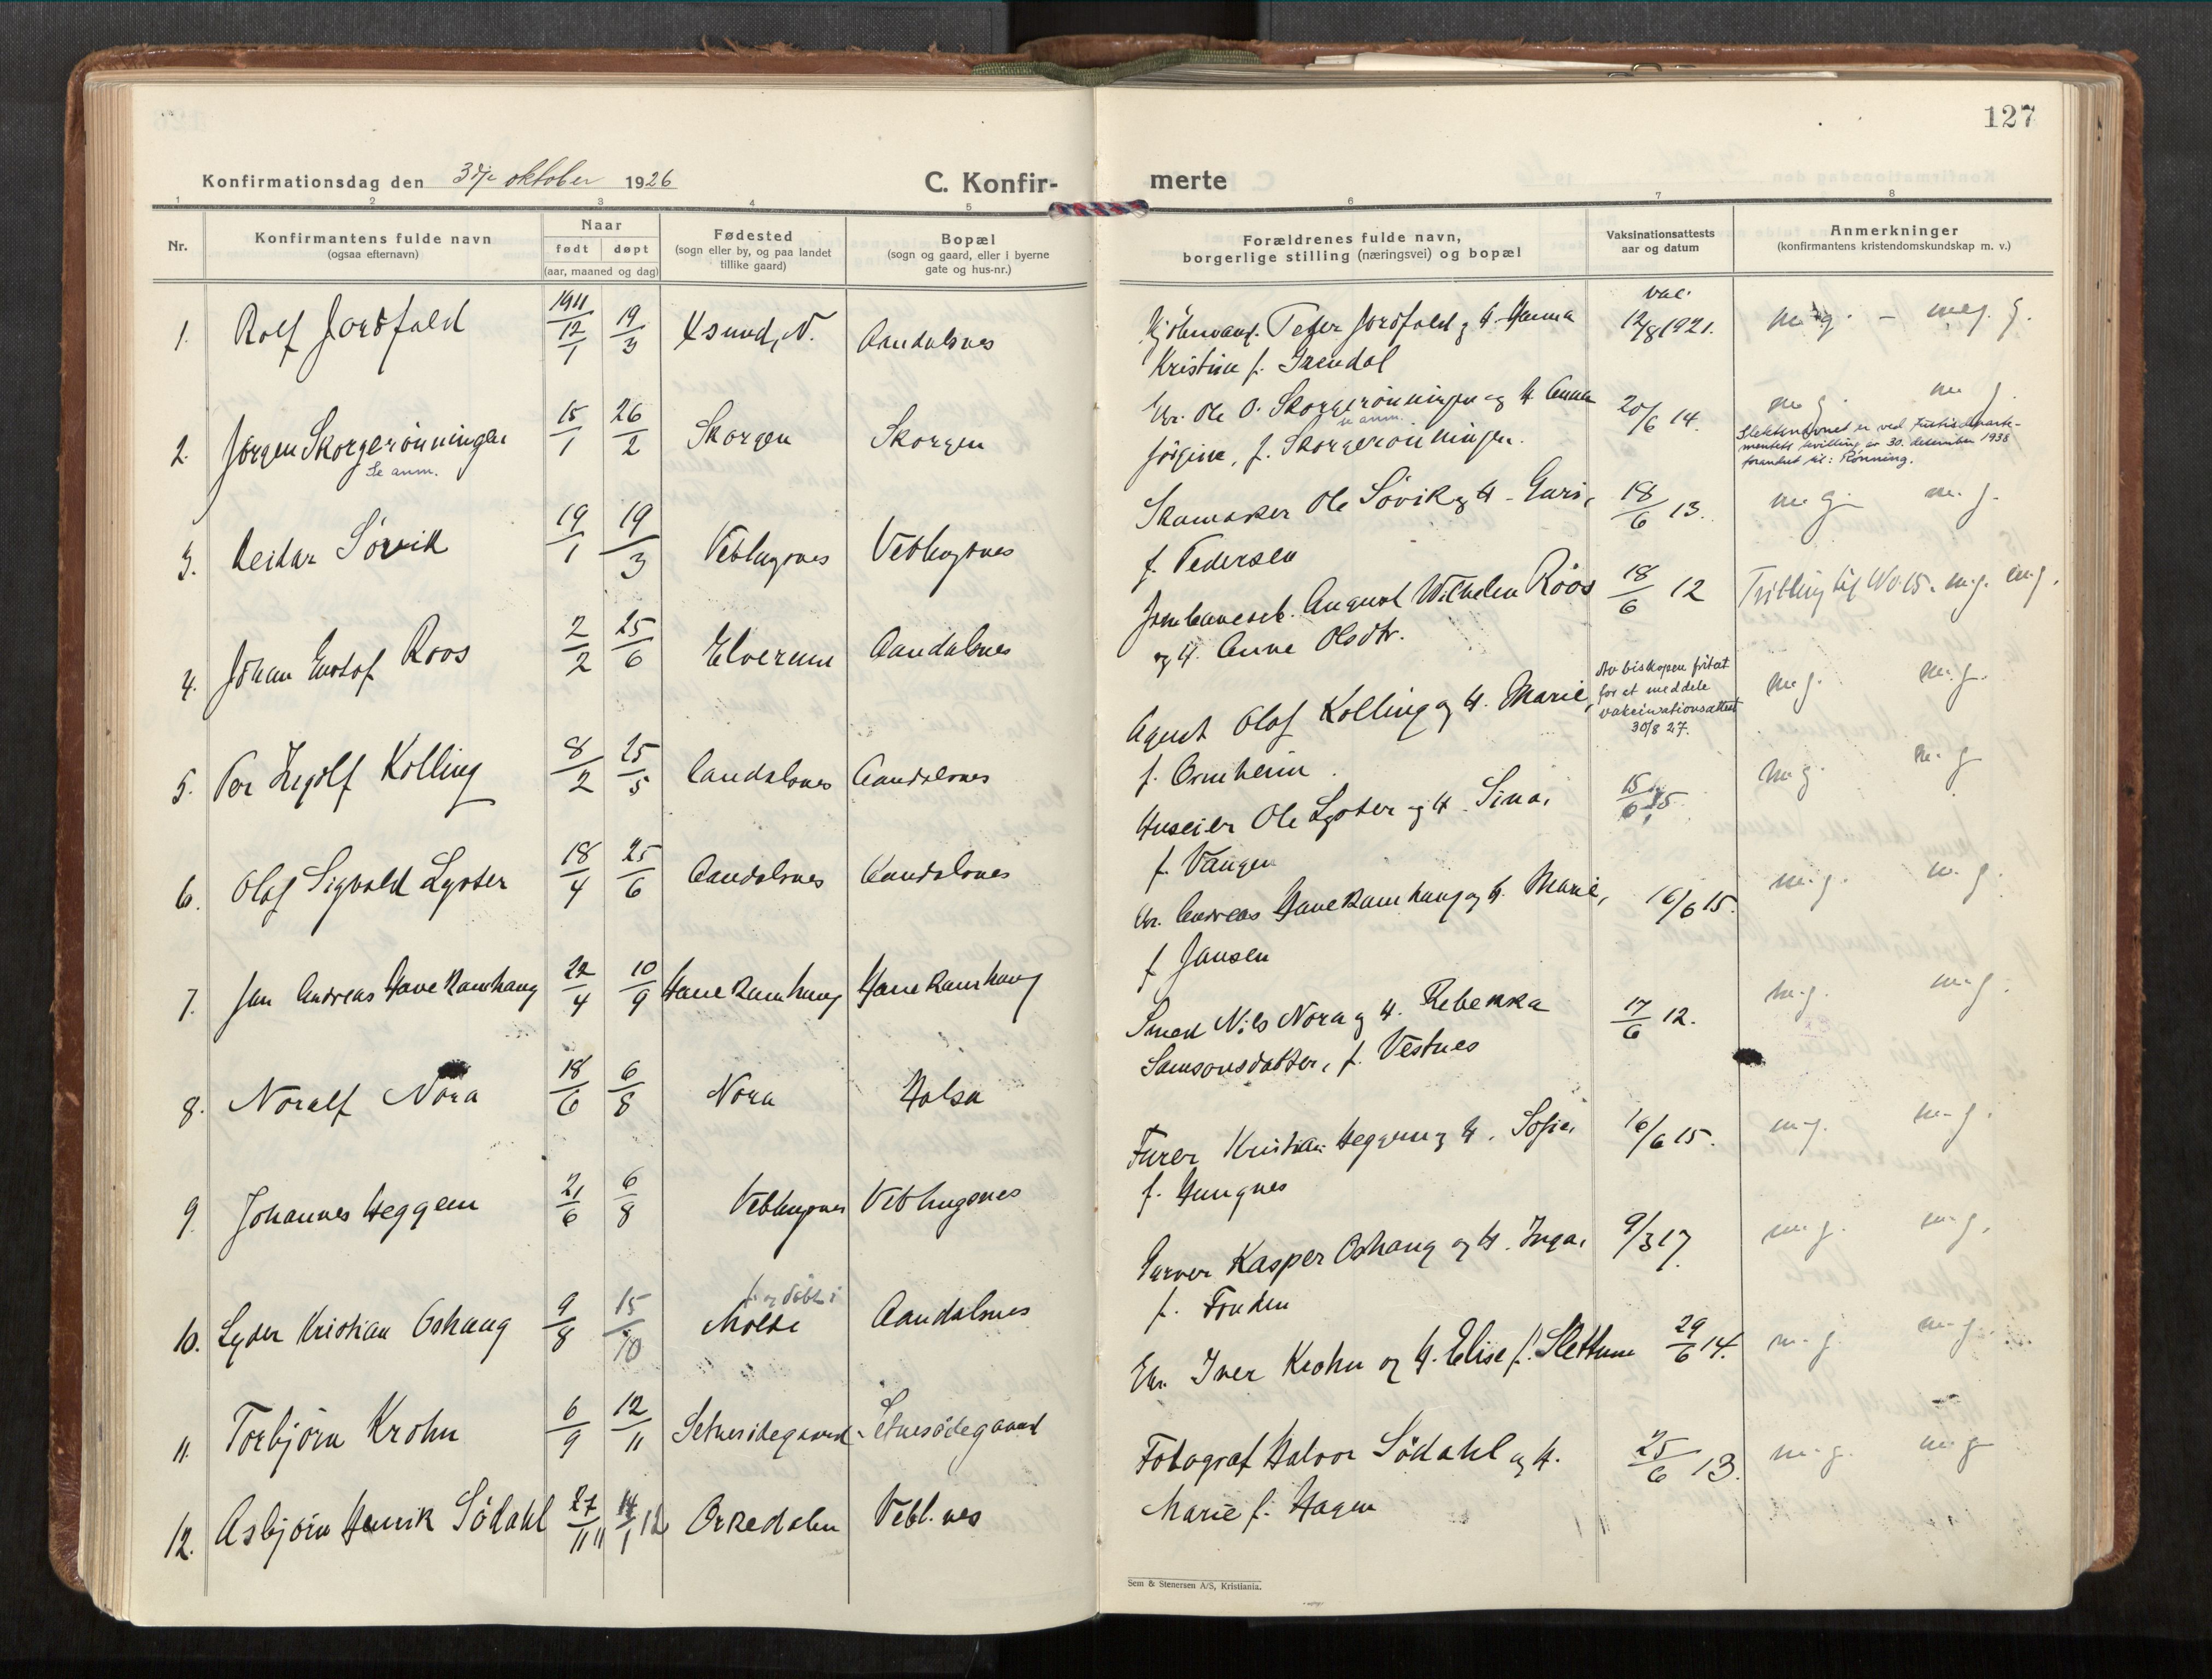 127
Konfirmationsdag den 3dje oktober 1926
C. Konfir-
merte
1 2 3 4 5 6 7 8
Nr.
Konfirmantens fulde navn
(ogsaa efternavn)
Naar
født døpt
(aar, maaned og dag)
Fødested
(sogn eller by, og paa landet
tillike gaard)
Bopæl
(sogn og gaard, eller i byerne
gate og hus-nr.)
Forældrenes fulde navn,
borgerlige stilling (næringsvei) og bopæl
Vaksinationsattests
aar og datum
Anmerkninger
(konfirmantens kristendomskundskap m. v.)
1. Rolf Jordfald 1911 12/1 19/3 Ksund, N. Aandalsnes
Peter Jordfald og H. Hanna
Kristine f. Grendal
vac.
12/8 1921.
m.g. - meg. g.
2. Jørgen Skorgerønningen 15/1 26/2 Skorgen Skorgen
Se anm.
Gbr. Ole O. Skorgerønningen og H. Anna
se anm.
Jørgine, f. Skorgerønningen.
20/6 14.
m g. m g.
Slektsnavnet er ved Justisdeparte-
mentets bevilling av 30. desember 1938
forandret til: Rønning.
3. Reidar Søvik 19/1 19/3 Veblugsnes Veblugsnes
Skomaker Ole Søvik og H. Guri,
f. Pedersen
18/6 13.
m g. m. g.
4. Johan Gustaf Roos 2/2 25/6 Elverum Aandalsnes
Jernbanearb. August Wilhelm Roos
og H. Anne Olsdtr.
18/6 12
Tvilling til No 15. m.g. m.g.
5. Per Ingolf Kolling 8/2 25/5 Aandalsnes Aandalsnes
Agent Olaf Kolling og H. Marie,
f. Ormheim
Av biskopen fritat
for at meddele
vakcinationsattest
30/8 27.
m.g. m.g.
6. Olaf Sigvald Lyster 18/4 25/6 Aandalsnes Aandalsnes
Huseier Ole Lyster og H. Sina,
f. Vangen
15/6 15.
m.g. m.g.
7. Jan Andreas Hanekamhaug 22/4 10/9 Hanekamhaug Hanekamhaug
Gbr. Andreas Hanekamhaug og H. Marie,
f. Jansen
16/6 15.
m.g. m.g.
8. Noralf Nora 18/6 6/8 Nora Halsa
Smed Nils Nora og H. Rebekka
Samsonsdatter, f. Vestnes
17/6 12.
m.g. m.g.
9. Johannes Heggem 21/6 6/8 Veblugsnes Veblugsnes
Furer Kristian Heggem og H. Sofie,
f. Hungnes
16/6 15.
m.g. m.g.
f. og døbt i
10. Lyder Kristian Oshaug 9/8 15/10 Molde Aandalsnes
Garver Kasper Oshaug og H. Inga,
f. Fonden
9/3 17.
m.g. m.g.
11. Torbjørn Krohn 6/9 12/11 Setnesødegaard Setnesødegaard
Gbr. Iver Krohn og H. Elise f. Slettum
29/6 14.
m.g. m.g.
12. Asbjørn Henrik Sødahl 27/11 11 14/1 12 Orkedalen Vebl.nes
Fotograf Halvor Sødahl og H.
Marie f. Hagen
25/6 13.
m.g. m.g.
Sem & Stenersen A/S, Kristiania.